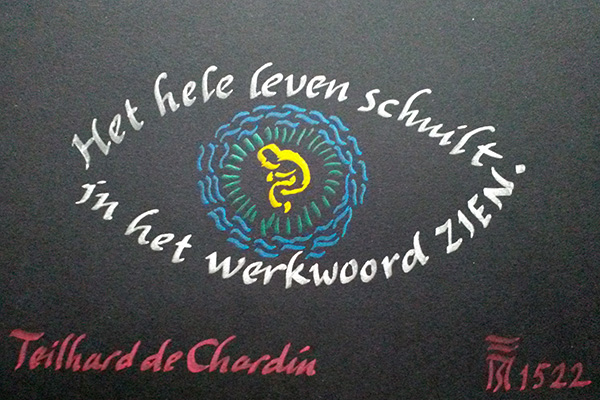 Het hele leven schuilt
in het werkwoord ZIEN.
Teilhard de Chardin
1522